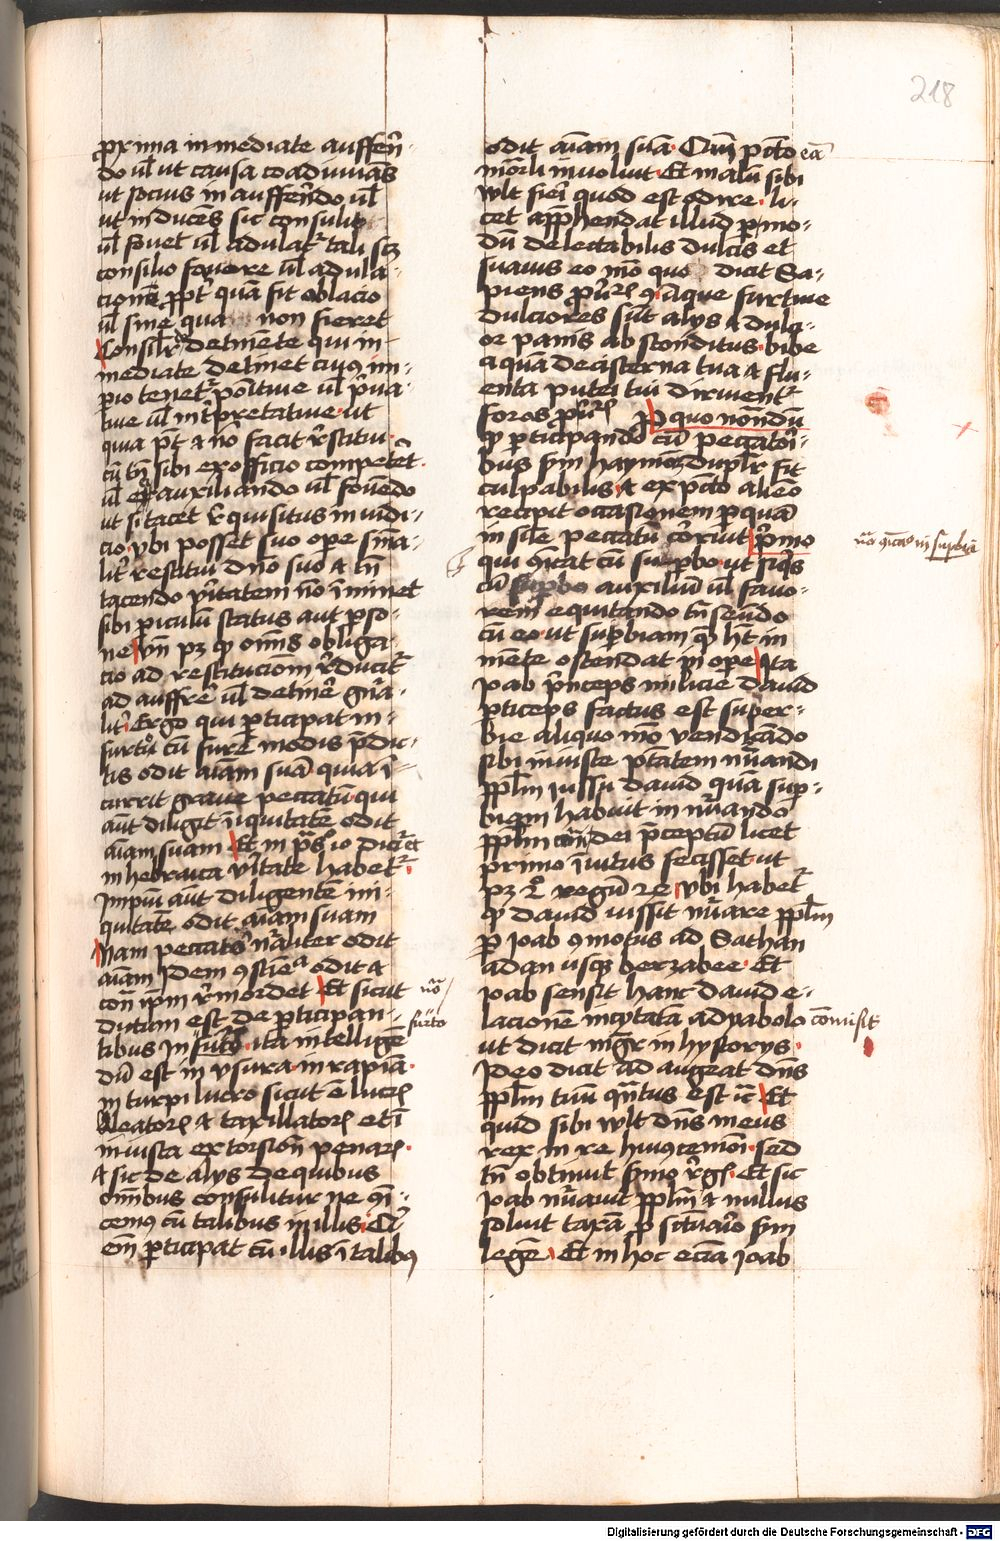 218
proxima inmediate auffere͞n-
do ul̄ ut causa coadiuua͞s
ut socius in auffere͞ndo ul̄
ut induce͞s sic consulit
ul̄ fouet ul̄ adulat᷑ tali sꝫ
consilio fouore ul̄ adula-
cione͞ ꝓpt̄ qua͞ fit oblacio
ul̄ sine qua non fieret
Consil̄r detine͞te qui in-
mediate detinet
tiue ul̄ int̄pretatiue ut
quia p͞t & no͞ facit r̄stitui
cu͞ tn̄ sibi ex officio competēt
ul̄ auxiliando ul̄ foue͞do
ut si tacet r̄quisitus in iudi-
cio vbi posset suo ope sīa-
lit̄ restitui dn̄o suo & tn̄
tacendo v̄itatem no͞ i͞minet
sibi periculu͞ status aut p̱so-
ne vn̄ pꝫ ꝙ om̄is obliga-
cio ad restitucione͞ r̄ducit᷑
ad auffer̄ ul̄ detiner̄ gn̄ra-
lit̄ Ergo qui p̱ticipat in
furtu͞ cu͞ fure͞ modis p̄dic-
tis odit ai͞am sua͞ quia i͞-
currit graue peccatu͞ qui
aut͞ diligit i͞iquitate͞ odit
ai͞am suam Et in ps͞o io dicit᷑ et
in hebraica v̄itate habet᷑
Impiu͞ aut͞ diligente͞ ini-
quitate͞ odit ai͞am suam
Nam peccator̄ n̄raliter odit
ai͞am Idem ꝯscie͞cia odit &
con͞ ip̄m r̄mordet Et sicut
dictum est de p̱ticipan-
tibus In furto ita intellige͞-
du͞ est in vsura in rapina
in turpi lucro sicut
Aleatorꝝ & taxillatorꝝ eti͞
iniusta extorsion̄ penarꝝ
& sic de alijs de quibus
omnibus consulitur ne
cu͞ talibus in illis
em̄ p̱ticipat cu͞ illis i͞ talibꝰ
no͞
furto
odit ai͞am sua͞ Cum p͞cto ea͞
mor̄li inuoluit Et malu͞ sibi
wlt fieri quod est odire li-
cet appr̄hendat illud p̱ mo-
du͞ delectabilis dulcis et
suauis eo mo͞ quo dicit Sa-
piens ꝓūꝝ 9 Aque furtiue
dulciores su͞t alijs & dulci-
or panis absconditus bibe
aqua͞ de cisterna tua & flu-
enta putei tui diriuent᷑
foros ꝓūꝝ Pro quo nota͞ndu͞
ꝙ p̱ticipando cu͞ peccatori-
bus sm͞ haymone͞ dupl̄r fit
culpabilis & ex p͞cto alieno
recipit occasionem p̱ qua͞
in sil̄e peccatu͞ corruit Primo
qui co͞icat cu͞ superbo ut si q̄s
cu͞ superbo auxiliu͞ ul̄ fauo-
rem equitando tn̄ sedendo
cu͞ eo ut superbiam qua͞ ht̄ in
mente ostendat in ope Ita
ioab princeps milicie dauid
p̱ticeps factus est super-
bie aliquo mo͞ vendica͞do
sibi iniuste p̄tatem nu͞erandi
ppl̄m iussu dauid qua͞ sup̱-
biam habuit in nu͞erando
ppl̄m con͞ dei p̄ceptu͞ licet
primo i͞uitus fecisset ut
pꝫ 2o regu͞ 24 vbi habet᷑
ꝙ dauid iussit nu͞erare ppl̄m
p̱ ioab ꝯmotus ad Sathan
a dan usqꝫ berzabee Et
ioab sensit hanc dauid e-
lacione͞ incitata͞ a dyabolo
ut dicit mgr̄ in hystorijs
Ideo dicit ad augeat dn̄s
ppl̄m tuu͞ quantus est Et
quid sibi wlt dn̄s meus
rex in re huiꝰcemodi sed
tn̄ obtinuit sermo r̄gꝭ Et sic
ioab nu͞erauit ppl̄m & nullus
soluit taxa͞ sm͞
lege͞ Et in hoc ecia͞ ioab
in superbia
comisit
Digitalisierung gefördert durch die Deutsche Forschungsgemeinschaft - DFG